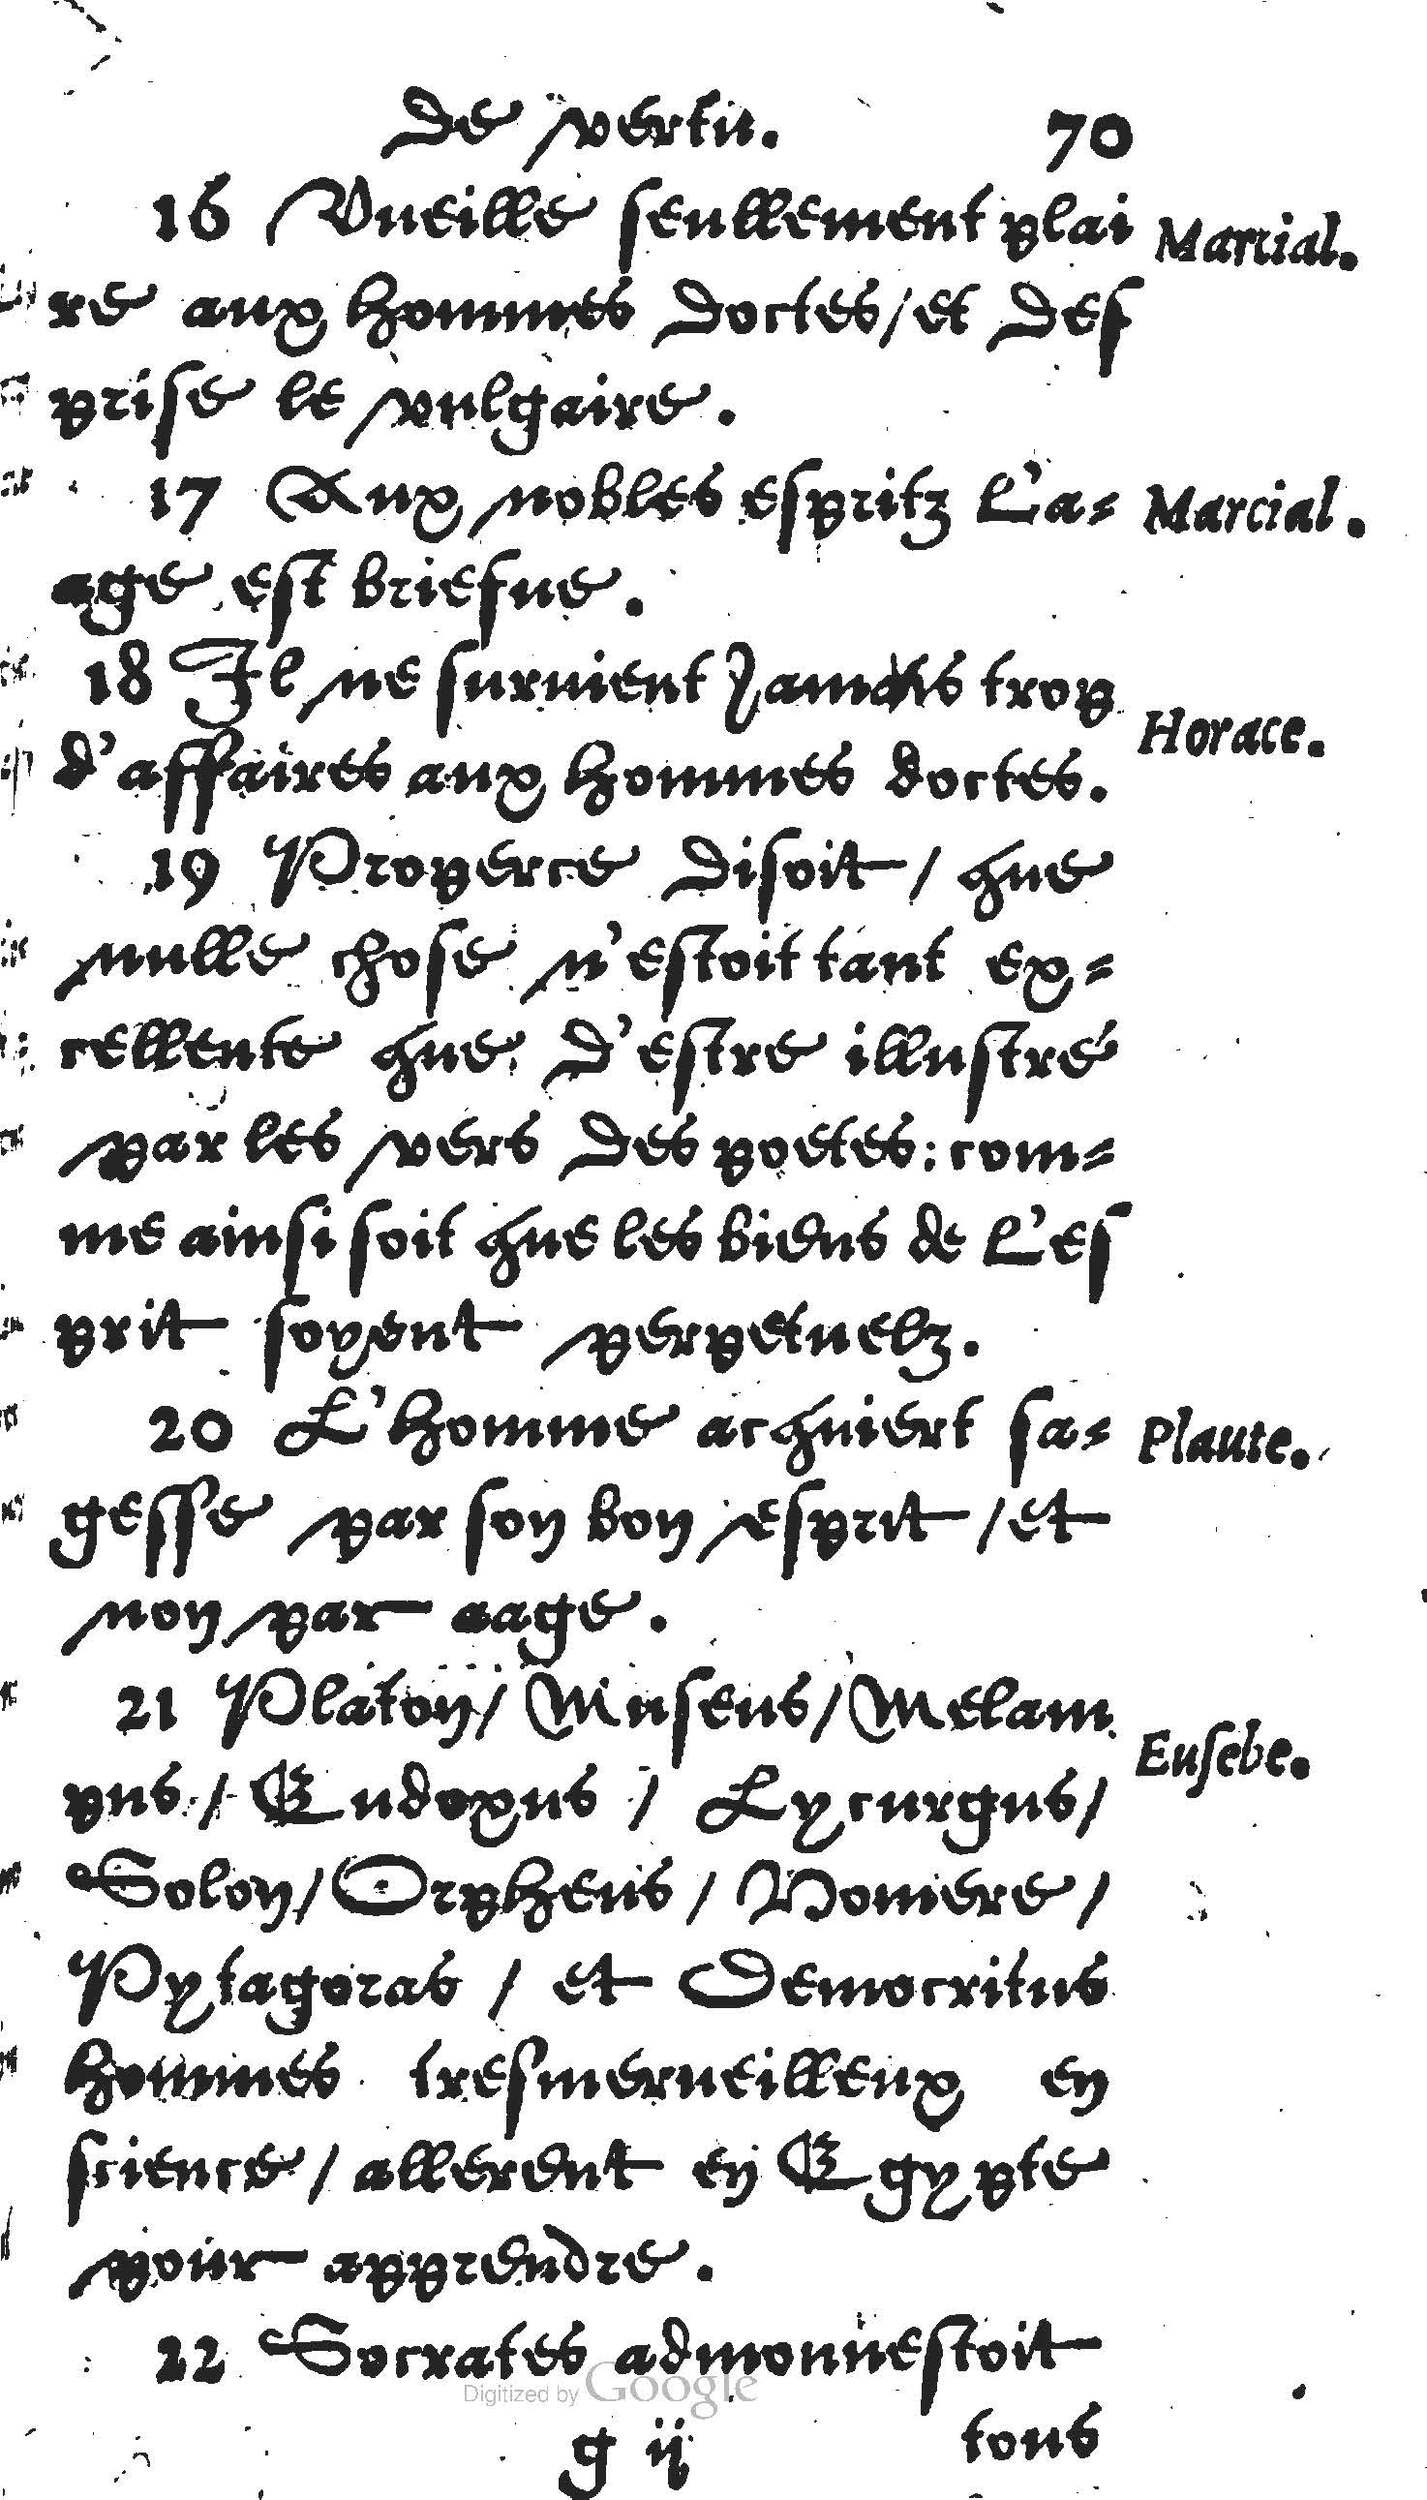 De vertu. 70
16 Vueille seullement plai
Marcial.
re aux hommes doctes/et des
prise le vulgaire.
17 Aux nobles espritz L'a=
Marcial.
age est briefue.
18 Il ne suruient Jamais trop
Horace.
d'affaires aux hommes doctes.
19 Properce disoit/ que
nulle chose n'estoit tant ex=
cellente que d'estre illustré
par les vers des poetes: com=
me ainsi soit que les biens de L'es
prit soyent perpetuelz.
20 L'homme acquiert sa=
Plaute.
gesse par son bon esprit/et
non par aage.
21 Platon/ Museus/ Melam
Eusebe.
pus/ Eudoxus / Lycurgus/
Solon/ Orpheus / Homere /
Pytagoras / et Democritus
hommes tresmerueilleux en
science/ allerent en Egypte
pour apprendre.
22 Socrates admonnestoit
Digitized by Google
g ij tous